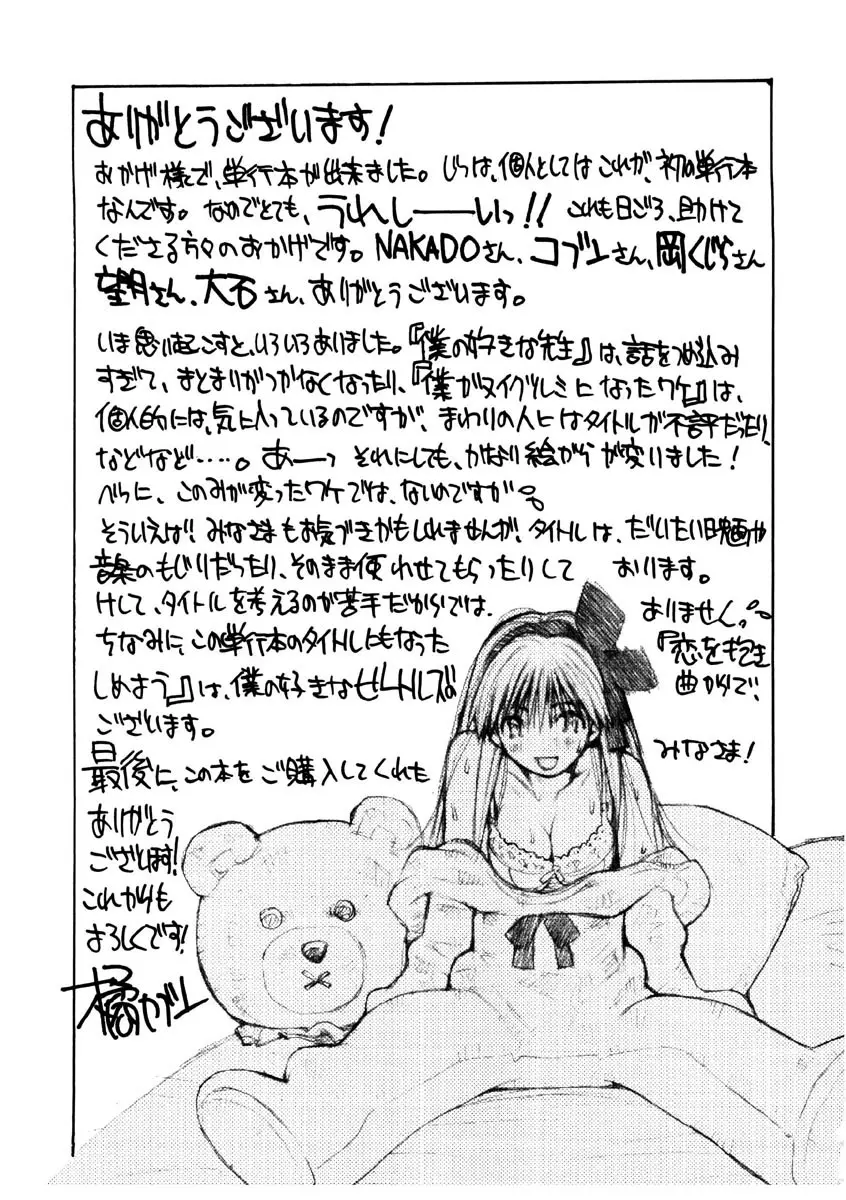 ありがとうございます!
おかげ様で、単行本が出来ました。じつは、個人としてはこれが、初の単行本
なんです。なのでとても、うれしーーいっ!! これも日ごろ、助けて
くださる方々のおかげです。NAKADOさん、コブンさん、岡くじらさん
望月さん、大石さん、ありがとうございます。
いま思い起こすと、いろいろありました。『僕の好きな先生』は、話をつめ込み
すぎて、まとまりがつかなくなったり、『僕がヌイグルミになったワケ』は、
個人的には、気に入っているのですが、まわりの人にはタイトルが不評だったり、
などなど‥‥。あーっ それにしても、かなり絵がらが変りました!
べつに、このみが変ったワケでは、ないのですが。
そういえば! みなさまもお気づきかもしれませんが、タイトルは、だいたい映画や
音楽のもじりだったり、そのまま使わせてもらったりして おります。
けして、タイトルを考えるのが苦手だからでは、 ありませんっ。
ちなみに、この単行本のタイトルにもなった 『恋を抱き
しめよう』は、僕の好きなビートルズの 曲からで、
ございます。
最後に、この本をご購入してくれた みなさま!
ありがとう
ございます!
これからも
よろしくです!
橘